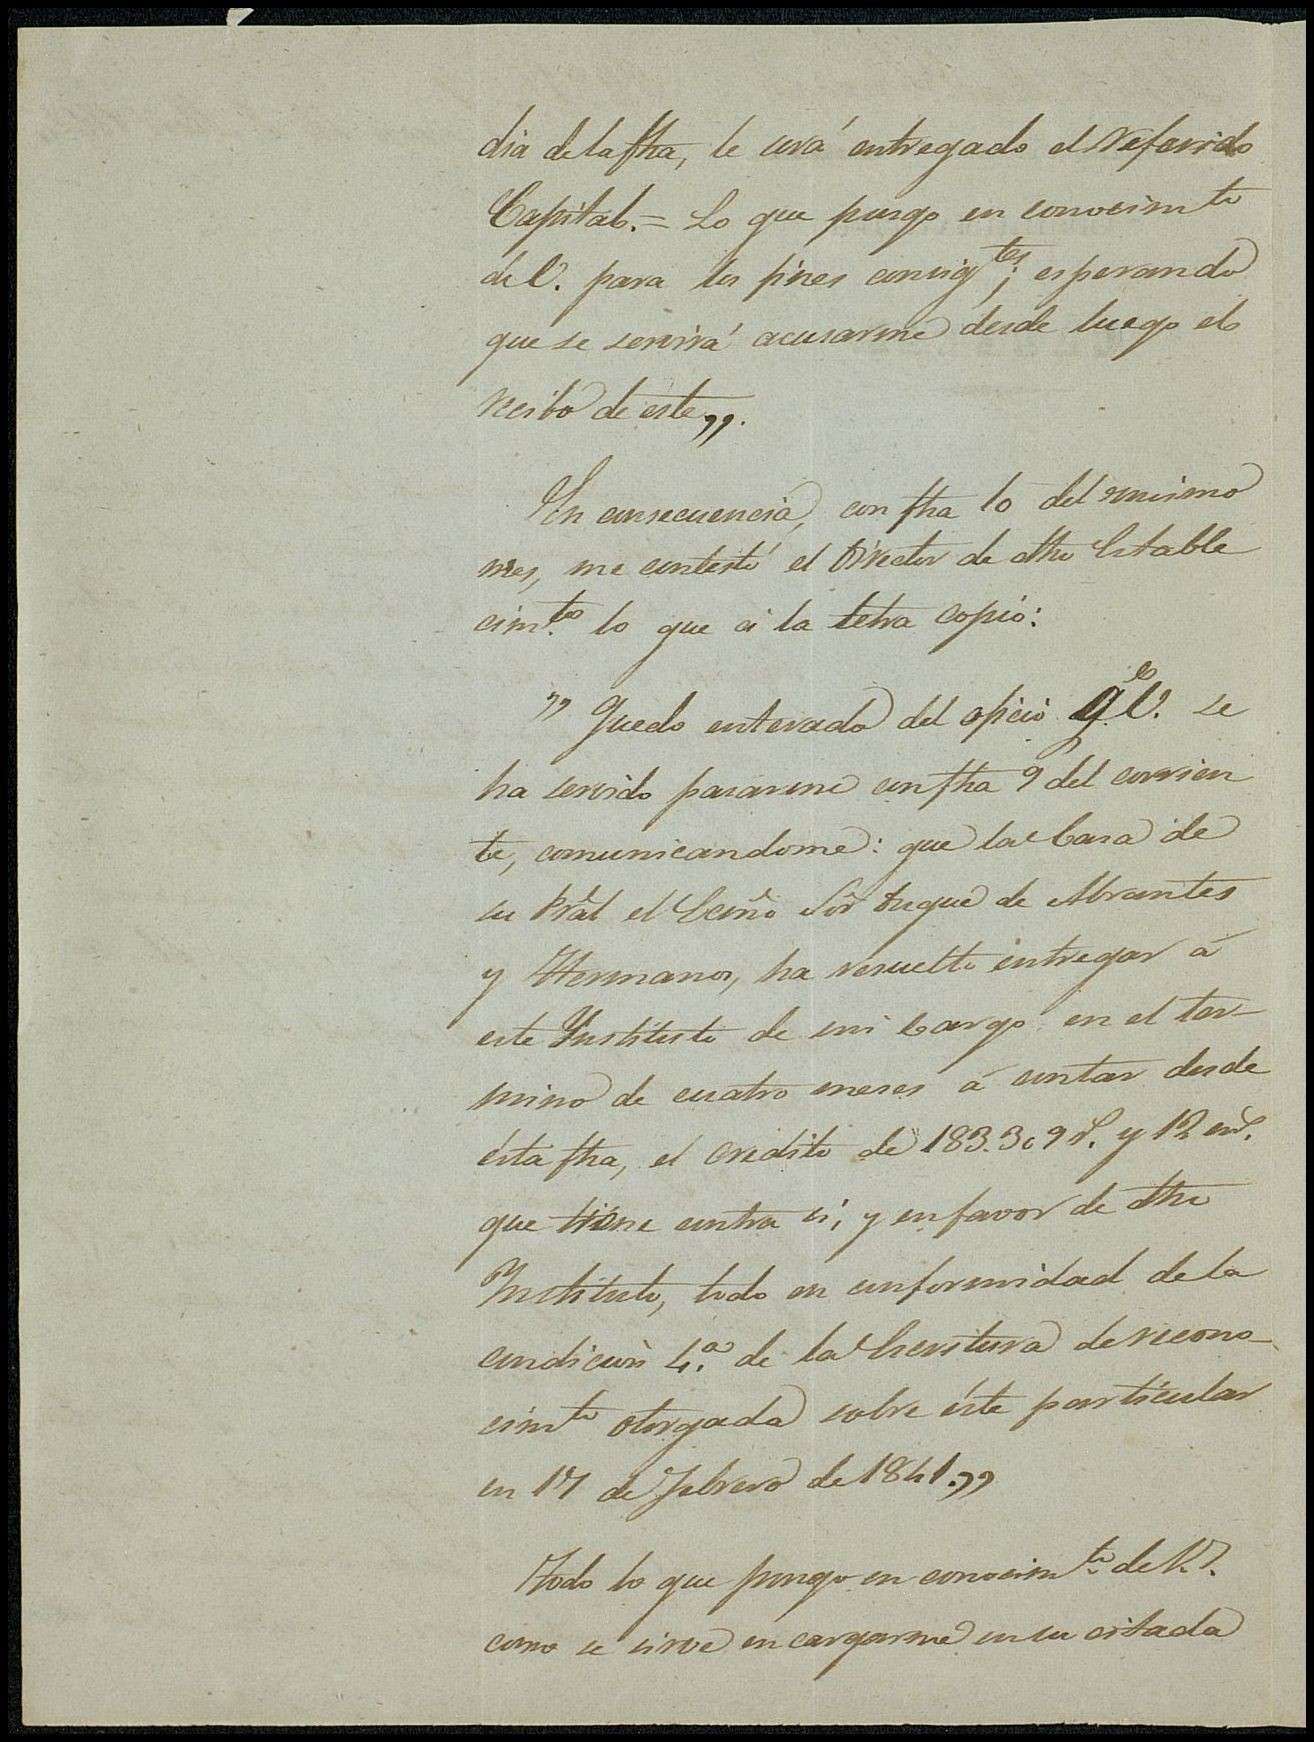 dia de la fha, le será entregado el referido
Capital.= Lo que pongo en conocimto
de V. para los fines consigtes; esperando
que se servirá acusarme desde luego el
recibo de este,,.
En consecuencia, con fha 10 del mismo
mes, me contestó el Director de dho Estable
cim.to lo que á la letra copio:
,, Quedo enterado del oficio q.e V. se
ha servido pasarme con fha 9 del corrien
te, comunicandome: que la Casa de
su Pral el Ecmo Sor Duque de Abrantes
y Hermanos, ha resuelto entregar á
este Instituto de mi cargo en el ter-
mino de cuatro meses á contar desde
ésta fha, el credito de 183.309 r.s y 12 m.s
que tiene contra si, y en favor de dho
Instituto, todo en conformidad de la
condicion 4.a de la Escritura de recono-
cimto otorgada sobre éste particular
en 17 de Febrero de 1841.,,
Todo lo que pongo en conocim.to de V.S.
como se sirve encargarme en su citada